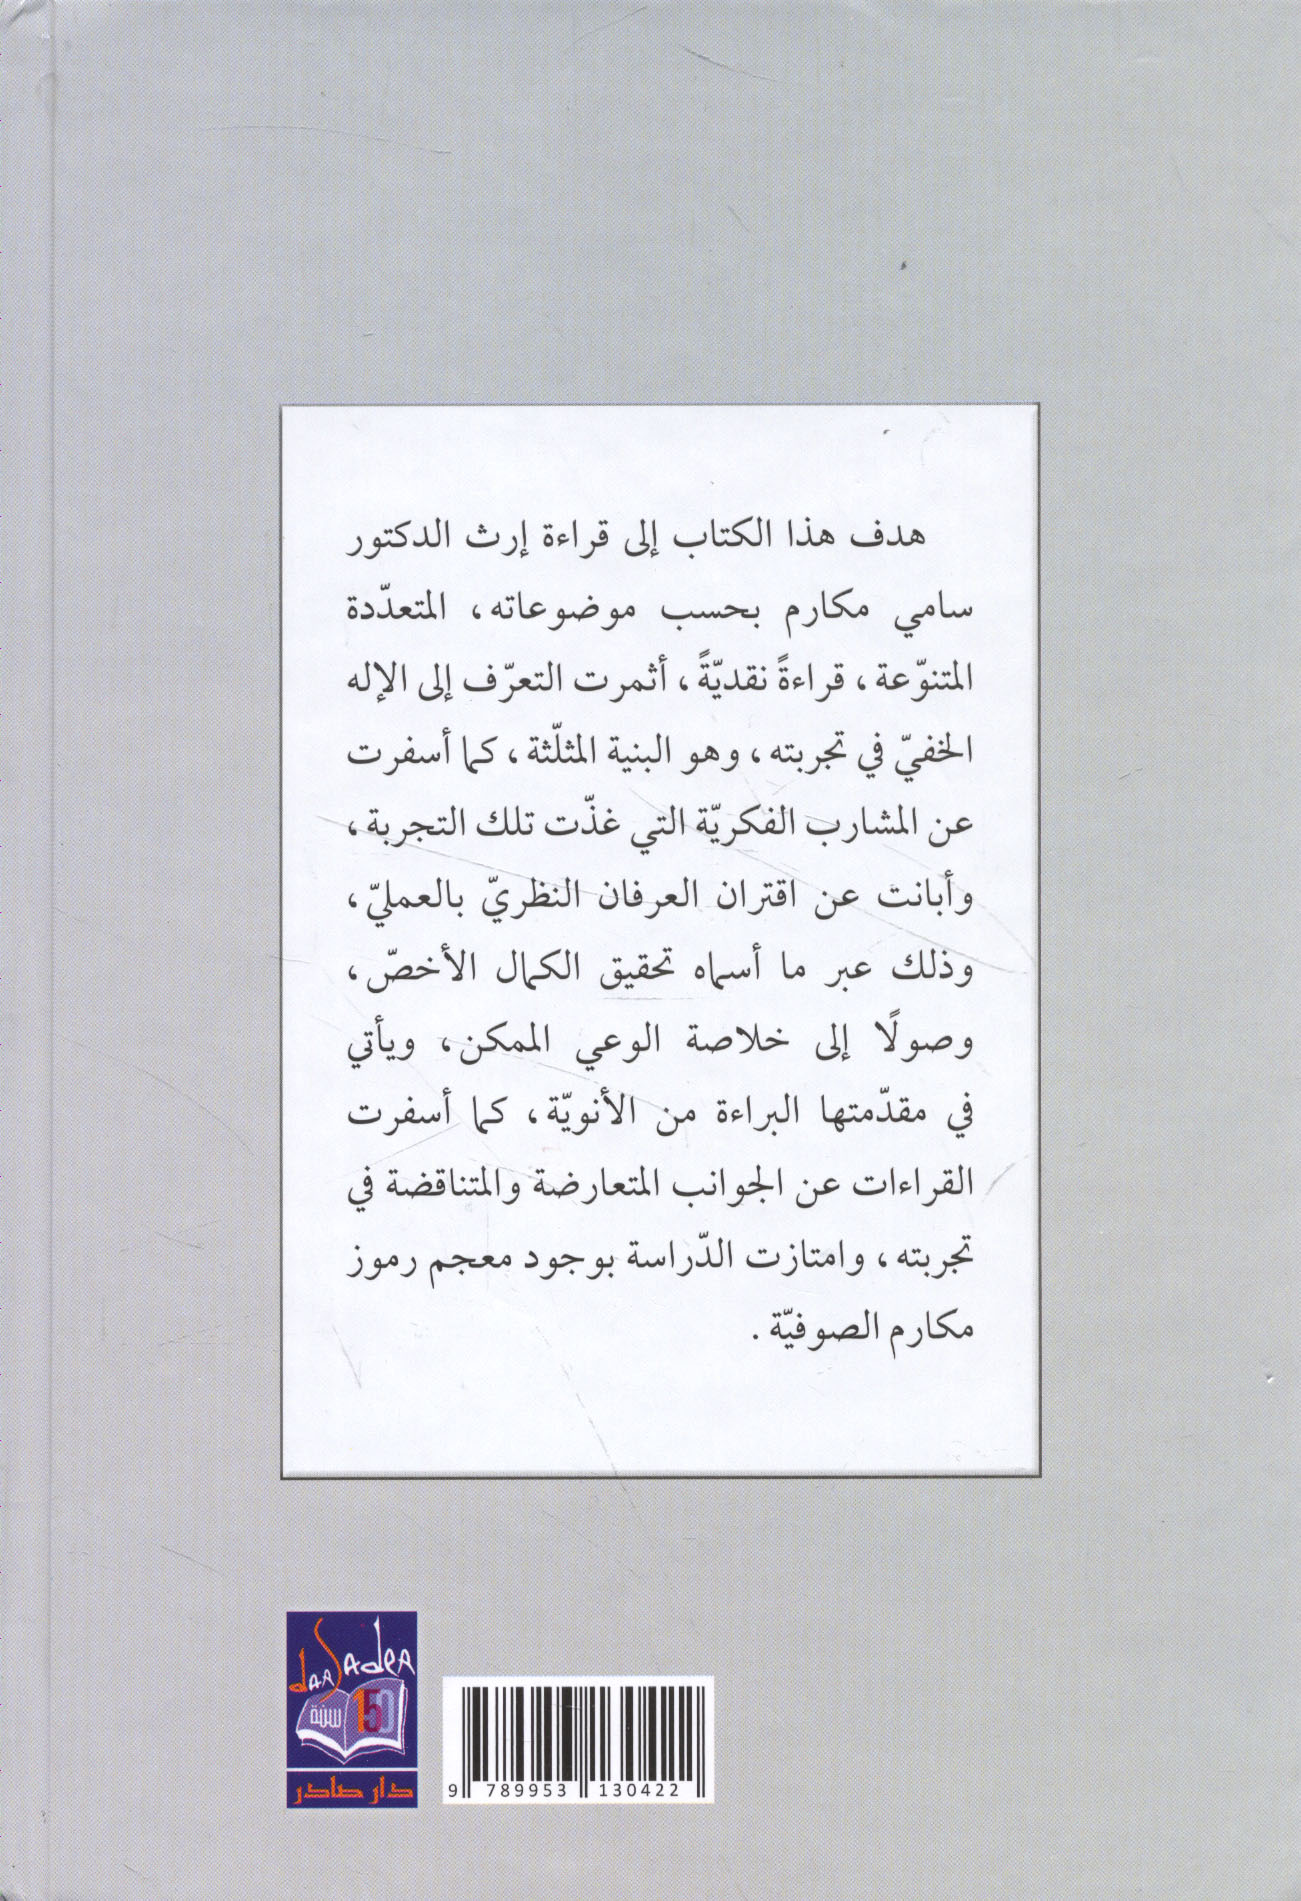 هدف هذا الكتاب إلى قراءة إرث الدكتور
سامي مكارم بحسب موضوعاته، المتعدّدة
المتنوّعة، قراءةً نقديّةً، أثمرت التعرّف إلى الإله
الخفيّ في تجربته، وهو البنية المثلّثة، كما أسفرت
عن المشارب الفكريّة التي غذّت تلك التجربة،
وأبانت عن اقتران العرفان النظريّ بالعمليّ،
وذلك عبر ما أسماه تحقيق الكمال الأخصّ،
وصولًا إلى خلاصة الوعي الممكن، ويأتي
في مقدّمتها البراءة من الأنويّة، كما أسفرت
القراءات عن الجوانب المتعارضة والمتناقضة في
تجربته، وامتازت الدّراسة بوجود معجم رموز
مكارم الصوفيّة.
dar Sader
150 سنة
دار صادر
9 789953 130422